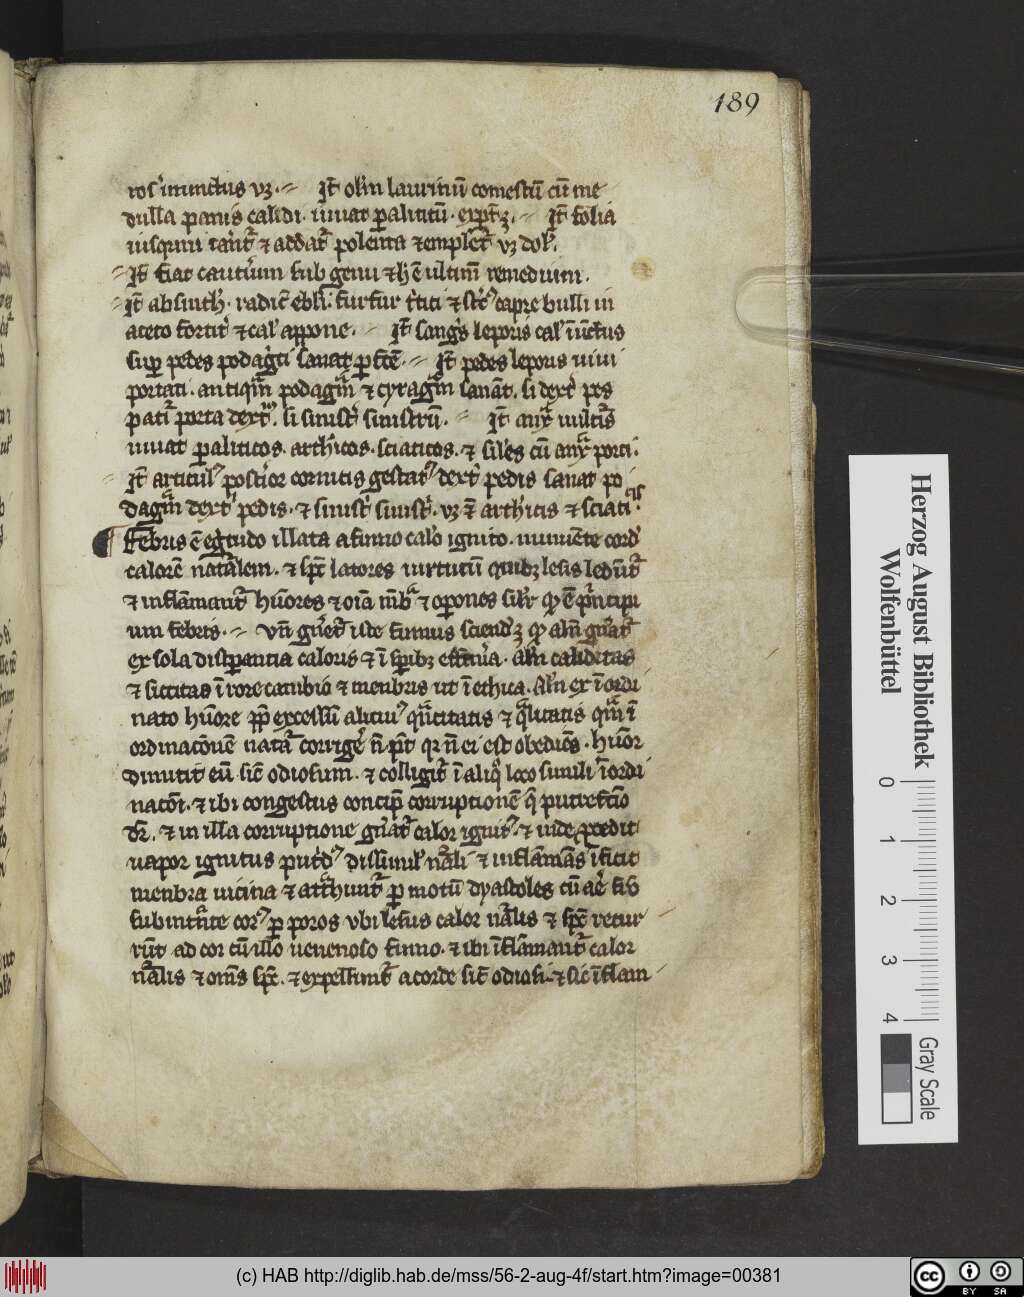 189
ros inunctus vꝫ. It oleū laurinū comestū cū me
dulla panis calidi. iuuat paliticū. expꝫ. It folia
iusqiami tant & addat polenta & emplet vꝫ dol.
It fiat cauterium sub genu & hē ultim remedium.
It absinth. radic ebli. furfur tritici & stc capre bulli in
aceto fortit & cal appone. It sangis leporis cal iūctus
sup pedes podagrici sanat pfcē. It pedes leporis uiui
portati. antiqm podagm & cyragm sanāt. si dext pes
patit porta dext. si sinist sinistrū. It anx uultis
iuuat paliticos. arthicos. sciaticos. & siles cū anx porci.
It articul postior cornutis gestat dext pedis sanat po
dagm dext pedis. & sinist sinist. vꝫ & arthicis & sciati
cis.
Febris ē egitudo illata a fumo calo ignito. inmiscente cord
calorē natalem. & spē latores uirtutū quibꝫ lesis ledūt
& inflāmant hūores & oīa mēb & opones silr qd ē pncipi
um febris. Vn gnet iste fumus sciendꝫ qd aln gnat
ex sola distpantia caloris & ī spibꝫ effimia. Aln caliditas
& siccitas ī rore cambio & menbris ut ī ethica. Aln ex īordi
nato hūore pp excessū alicui qntitatis & qlitatis qm ī
ordinacōnē nata corrige n pt qr n ei est obediēs. hūor
dimittit eū sic odiosum. & colligit ī aliq loco simili īordi
natōi. & ibi congestus concip corruptionē q putrefcīo
dr. & in illa corruptione gnat calor ignit. & inde pcedit
uapor ignitus putd dissimil nali & inflāmās īficit
menbra uicina & atthunt p motū dyastoles cū aē sil
subintnte cor p poros vbi lesus calor nalis & spē recur
rūt ad cor cū illo uenenoso fumo. & ibi īflāmant calor
nalis & omīs spē. & expellunt a corde sic odiosi & sic īflam
Herzog August Bibliothek
Wolfenbüttel
0 1 2 3 4
Gray Scale
(c) HAB http://diglib.hab.de/mss/56-2-aug-4f/start.htm?image=00381
cc BY SA